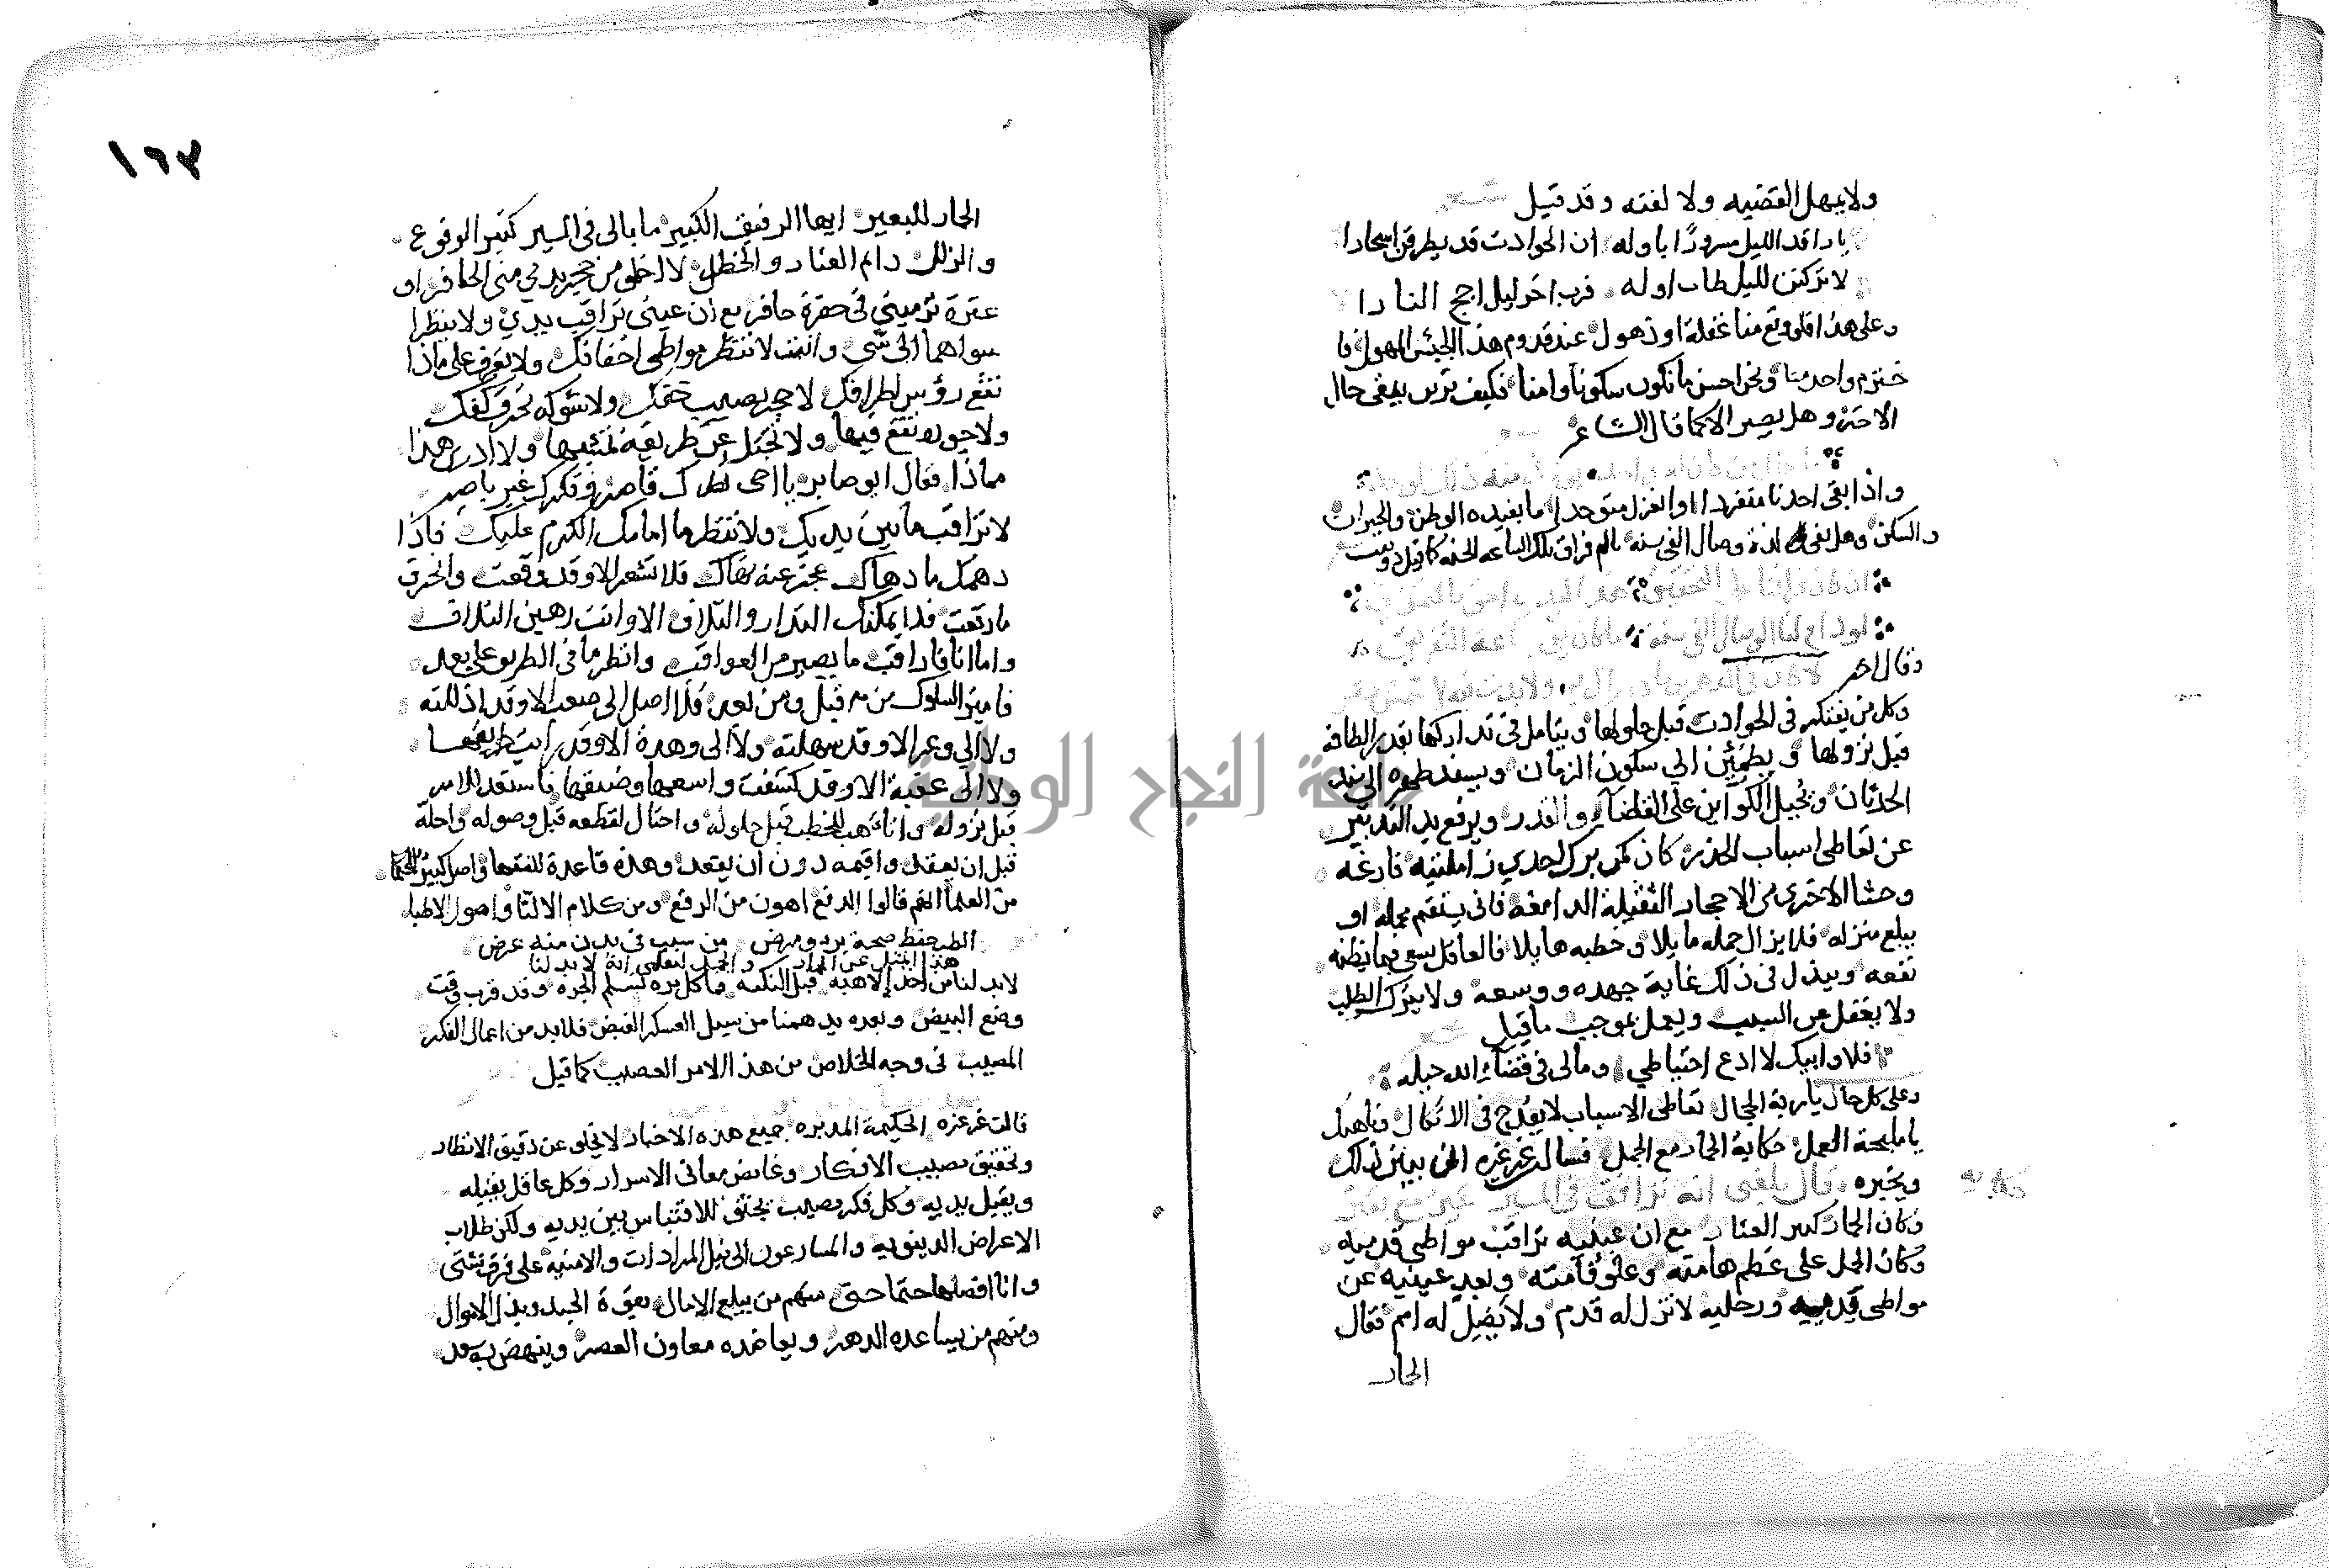 ولا يهمل القضيه ولا لفته وقد قيل شعر
يا راقد الليل مسرورًا باوله ان الحوادث قد يطرقن اسحارا
لا تركنن لليل طاب اوله فرب اخر ليل اجج النارا
وعلى هذا فلو وقع منا غفلة او ذهول عند قدوم هذا الجيش المهول فا
ختزم واحد منا ونحن احسن ما نكون سكونا وامنا فكيف ترين يبقى حال
الاخر وهل يصير الا كما قال الشاعر
واذا بقى احدنا منفردا او انعزل متوحدا ما يفيده الوطن والجيران
والسكن وهل يفى لذة وصال الفى سنه بالم فراق تلك الساعه الخشنه كما قيل دوبيت
ان كان
لو دام لنا الوصال الفى سنة ما كان يفى ساعة التفريق
وقال اخر
وكل من يفتكر فى الحوادث قبل حلولها ويتامل فى تداركها بقدر الطاقه
قبل نزولها ويطمئن الى سكون الزمان ويسند ظهره الى يد
الحدثان ويحيل الكواين على القضاء والقدر ويرفع يد التدبير
عن تعاطى اسباب الحذر كان كمن ترك احدي زاملتيه فارغه
وحشا الاخرى من الاحجار الثقيلة الدامغه فانى يستقيم محمله او
يبلغ منزله فلا يزال حمله مايلا وخطبه هايلا فالعاقل يسعى فيما يظنه
نفعه ويبذل فى ذلك غاية جهده ووسعه ولا يترك الطلب
ولا يغفل عن السبب ويعمل بموجب ما قيل شعر
فلا وابيك لا ادع احتياطي ومالى فى قضاء الله حيله
وعلى كل حال يا ربة الحجال تعاطى الاسباب لا يقدح فى الاتكال وناهيك
يا مليحة العمل حكاية الحمار مع الجمل فسالت غرغره النى يبين ذلك
ويخبره قال بلغنى انه ترافق فى المسير
حكايه
وكان الحمار كثير العثار مع ان عينيه تراقب مواطى قدميه
وكان الجمل على عظم هامته وعلو قامته وبعد عينيه عن
مواطى قدميه ورحليه لا تزل له قدم ولا يضل له امم فقال
الحمار
١٦٧
الحمار للبعير ايها الرفيق الكبير ما بالى فى المسير كثير الوقوع
والزلل دايم العثار والخطل لا اخلو من حجر يدمي منى الحافر او
عثرة ترميني فى حفرة حافر مع ان عينى تراقب يدي ولا ينظرا
سواهما الى شى وانت لا تنظر مواطى اخفافك ولا تعرف على ماذا
تقع رؤس اطرافك لا حجر يصيب خفك ولا شوكه تخرق كفك
ولا جوره تقع فيها ولا تختل عن طريقة تمشيها ولا ادرى هذا
مماذا فقال ابو صابر يا اخى نظرك قاصر وفكرك غير باصر
لا تراقب ما بين يديك ولا تنظر ما امامك الكرم عليك فاذا
دهمك ما دهاك عجز عنه نهاك فلا تشعر الا وقد وقعت وانخرق
ما رقعت فلا يمكنك التدارو والتلاف الا وانت رهين التلاف
واما انا فاراقب ما يصير من العواقب وانظر ما فى الطريق على بعد
فاميز السلوك من قبل ومن بعد فلا اصل الى صعب الا وقد اذللته
ولا الي وعر الا وقد سهلته ولا الى وهدة الا وقد رايت طريقها
ولا الى عقبة الا وقد كشفت واسعها وضيقها فاستعد للامر
قبل نزوله واتاهب للخطب قبل حلوله واحتال لقطعه قبل وصوله واحله
قبل ان يعقد واقيمه دون ان يقعد وهذه قاعدة للفقها واصل كبير للحكما
من العلما انهم قالوا الدفع اهون من الرفع ومن كلام الالبا واصول الاطبا
الطب حفظ صحة برو مرض من سبب فى بدن منه عرض
هذا المثل عن الحمار والجمل لتعلمى انه لا بد لنا
لابد لنا من اخذ الاهبه قبل النكبه فما كل مره تسلم الجره وقد قرب وقت
وضع البيض وبعده يدهمنا من سيل العسكر الفيض فلا بد من اعمال الفكر
المصيب فى وجه الخلاص من هذا الامر العصيب كما قيل
قالت غرغره الحكيمة المدبره جميع هذه الاخبار لا تخلى عن دقيق الانظار
وتحقيق مصيب الافكار وغامض معانى الاسرار وكل عاقل يقبله
ويقبل يديه وكل فكر مصيب يجثو للاقتباس بين يديه ولكن طلاب
الاعراض الدينويه والمسارعون الى نيل المرادات والامنيه على فرق شتى
وانا افصلها حتما حتى منهم من يبلغ الامال بقوة الجد وبذل الاموال
ومنهم من يساعده الدهر ويعاضده معاون العصر وينهض به سعد